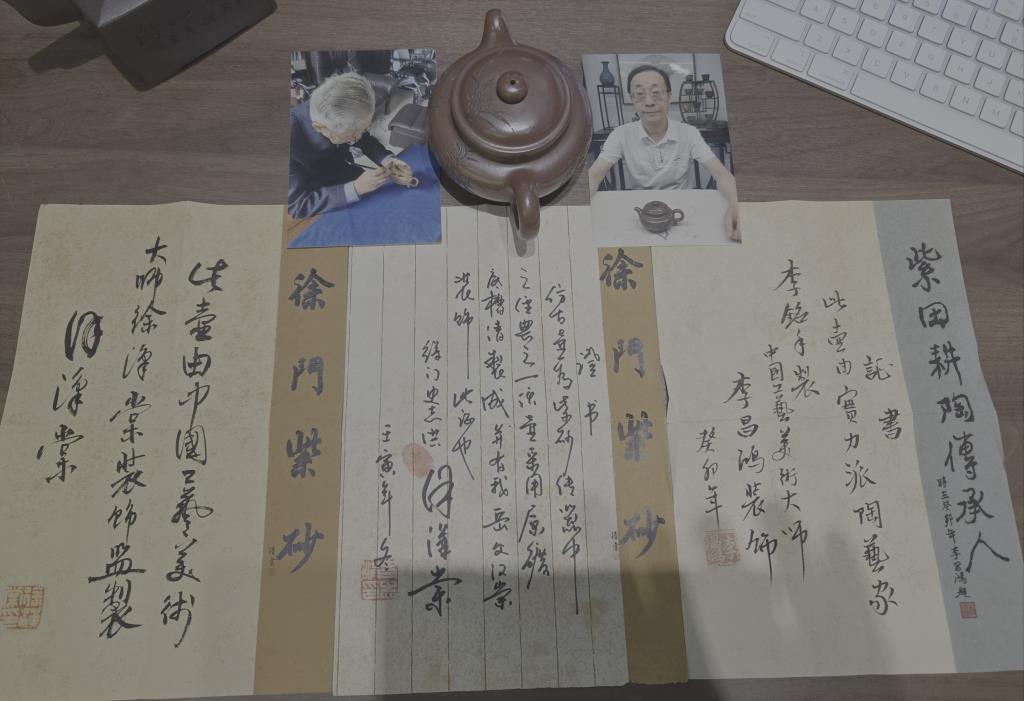 紫田耕陶傳承人
時在癸卯年李昌鴻題
証書
此壺由實力派陶藝家
李銘手製
中國工藝美術大師
李昌鴻裝飾
癸卯年
徐門紫砂
證书
仿古壶为紫砂传器中
之经典之一 该壶采用原礦
底槽清製成 并有我岳父汉棠
装饰 此证也
徐门史志洪
徐漢棠
壬寅年冬
徐門紫砂
此壺由中國工藝美術
大師徐漢棠裝飾監製
徐漢棠